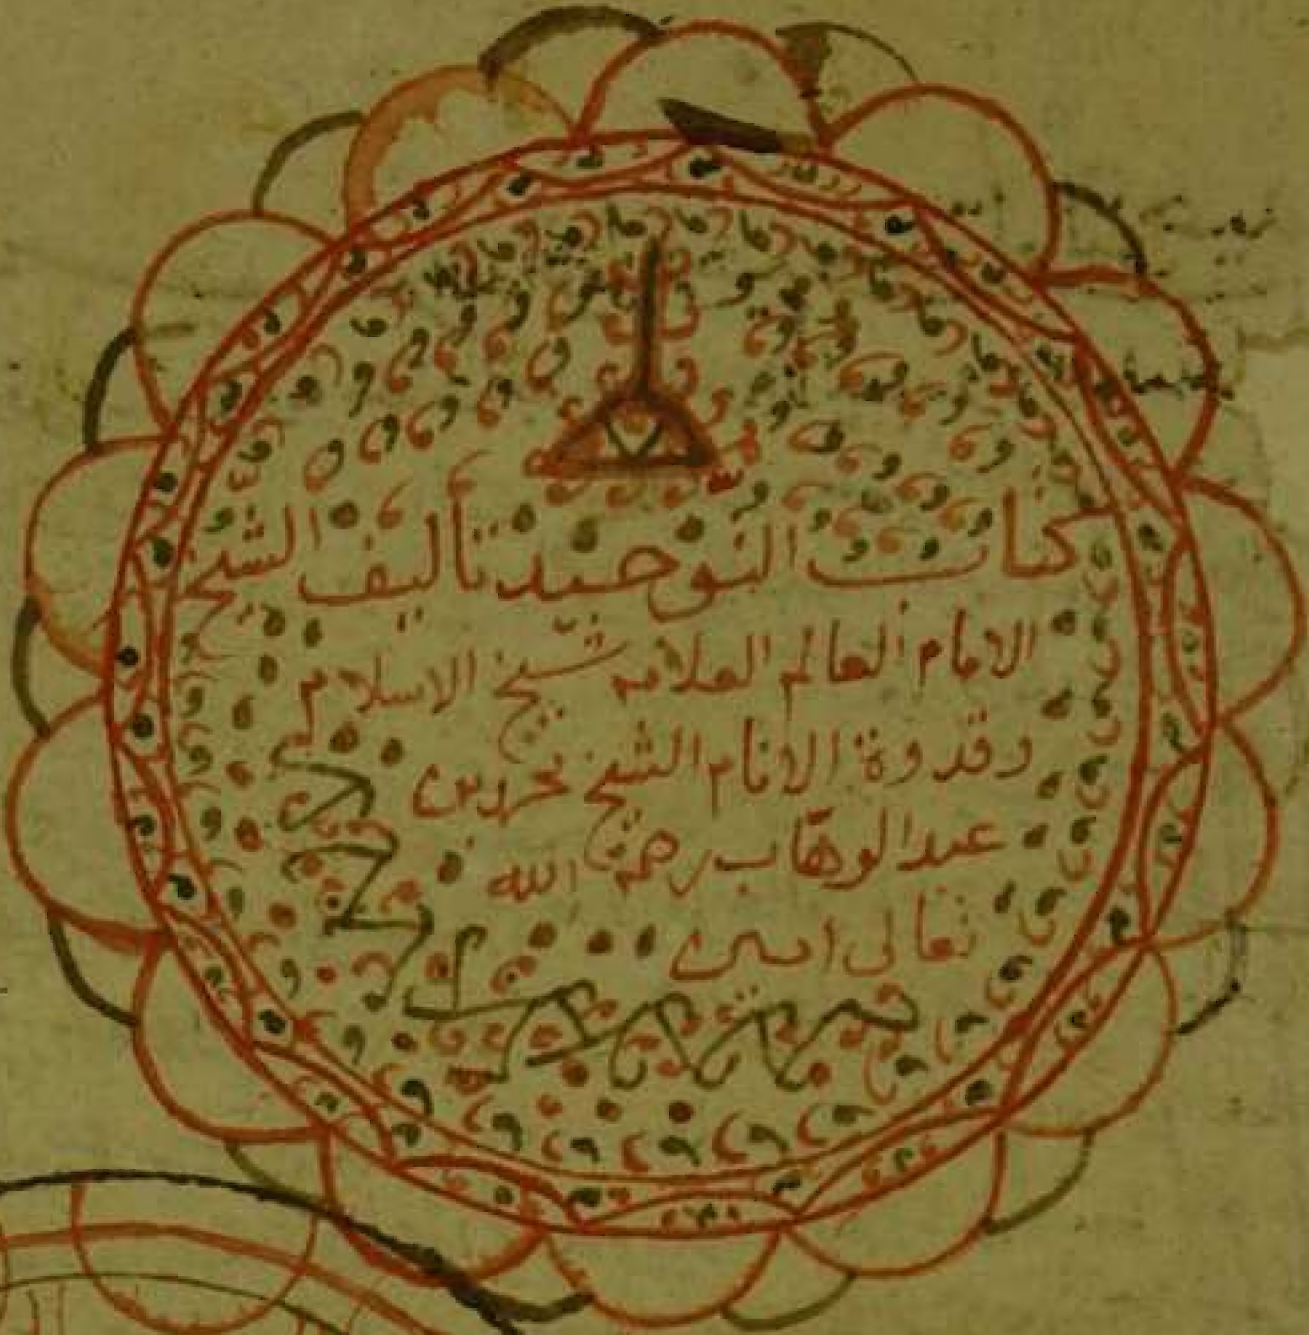 كتاب التوحيد تأليف الشيخ
الامام العالم العلامه شيخ الاسلام
وقدوة الانام الشيخ محمد بن
عبد الوهاب رحمه الله
تعالى امين